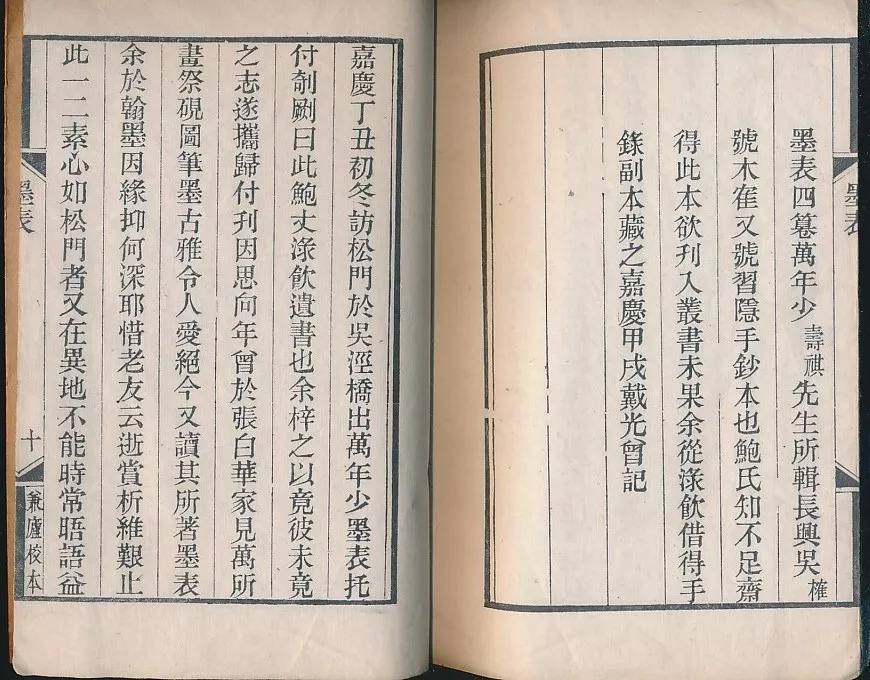 墨表四篹萬年少壽祺先生所輯長興吳榷
號木隺又號習隱手鈔本也鮑氏知不足齋
得此本欲刊入叢書未果余從淥飮借得手
錄副本藏之嘉慶甲戌戴光曾記
墨表
嘉慶丁丑初冬訪松門於吳涇橋出萬年少墨表托
付剞劂曰此鮑丈淥飮遺書也余梓之以竟彼未竟
之志遂攜歸付刊因思向年曾於張白華家見萬所
畫祭硯圖筆墨古雅令人愛絕今又讀其所著墨表
余於翰墨因緣抑何深耶惜老友云逝賞析維艱止
此一二素心如松門者又在異地不能時常晤語益
墨表
十
兼廬校本